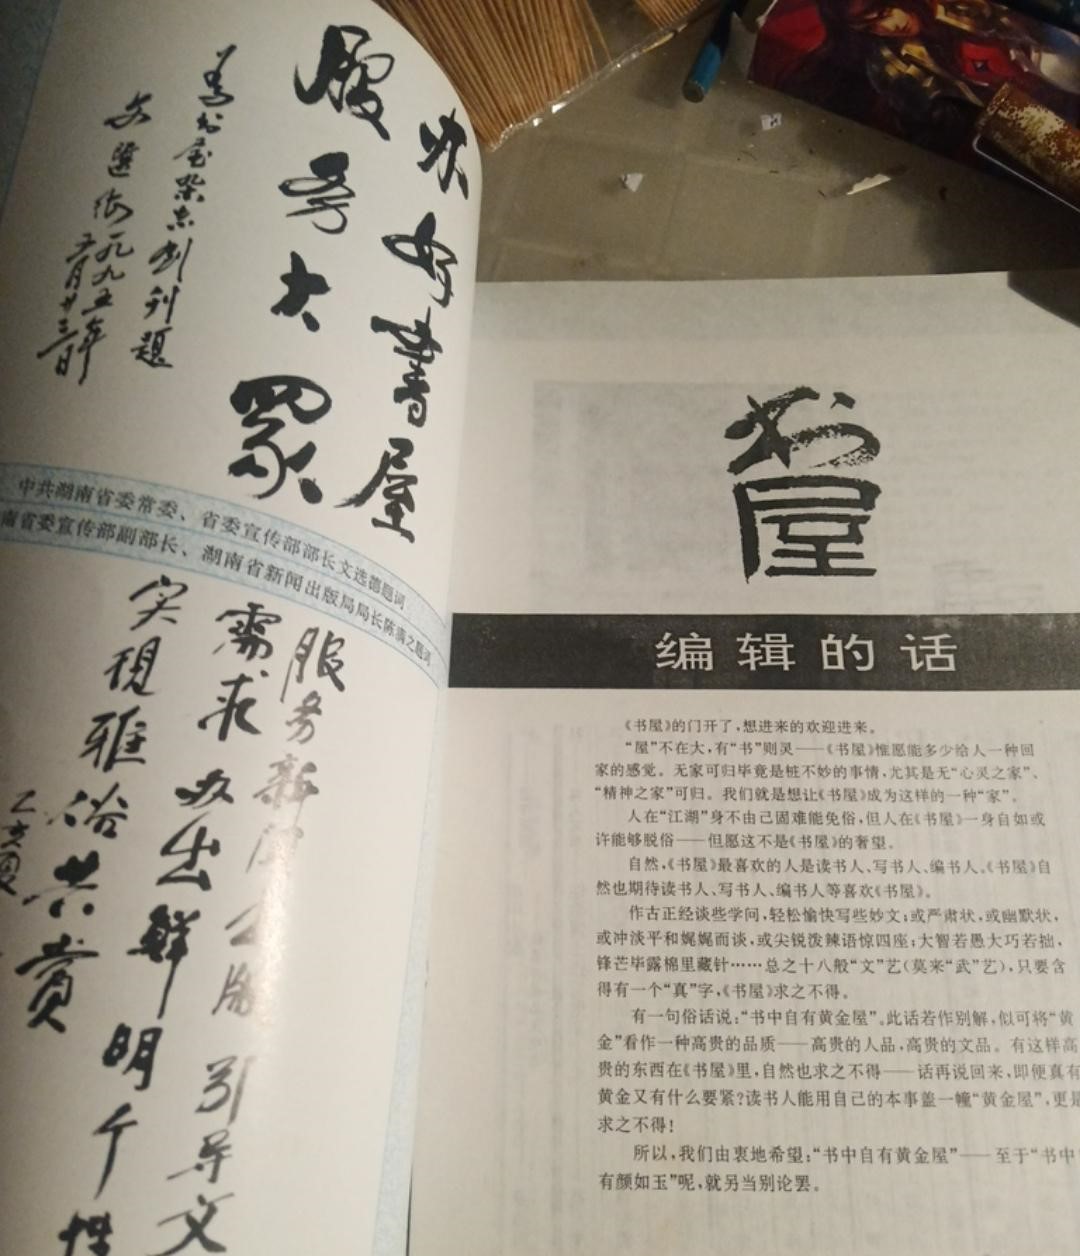 办好书屋
服务大众
为书屋杂志创刊题
文选德一九九五年
五月廿三日
中共湖南省委常委、省委宣传部部长文选德题词
南省委宣传部副部长、湖南省新闻出版局局长陈满之题词
服务新闻出版 引导文
需求 办出鲜明个性
实现雅俗共赏
乙亥夏
书屋
编辑的话
《书屋》的门开了,想进来的欢迎进来。
“屋”不在大,有“书”则灵——《书屋》惟愿能多少给人一种回
家的感觉。无家可归毕竟是桩不妙的事情,尤其是无“心灵之家”、
“精神之家”可归。我们就是想让《书屋》成为这样的一种“家”。
人在“江湖”身不由己固难能免俗,但人在《书屋》一身自如或
许能够脱俗——但愿这不是《书屋》的奢望。
自然,《书屋》最喜欢的人是读书人、写书人、编书人。《书屋》自
然也期待读书人、写书人、编书人等喜欢《书屋》。
作古正经谈些学问,轻松愉快写些妙文;或严肃状,或幽默状,
或冲淡平和娓娓而谈,或尖锐泼辣语惊四座;大智若愚大巧若拙,
锋芒毕露棉里藏针……总之十八般“文”艺(莫来“武”艺),只要含
得有一个“真”字,《书屋》求之不得。
有一句俗话说:“书中自有黄金屋”。此话若作别解,似可将“黄
金”看作一种高贵的品质——高贵的人品,高贵的文品。有这样高
贵的东西在《书屋》里,自然也求之不得——话再说回来,即便真有
黄金又有什么要紧?读书人能用自己的本事盖一幢“黄金屋”,更是
求之不得!
所以,我们由衷地希望:“书中自有黄金屋”——至于“书中
有颜如玉”呢,就另当别论罢。